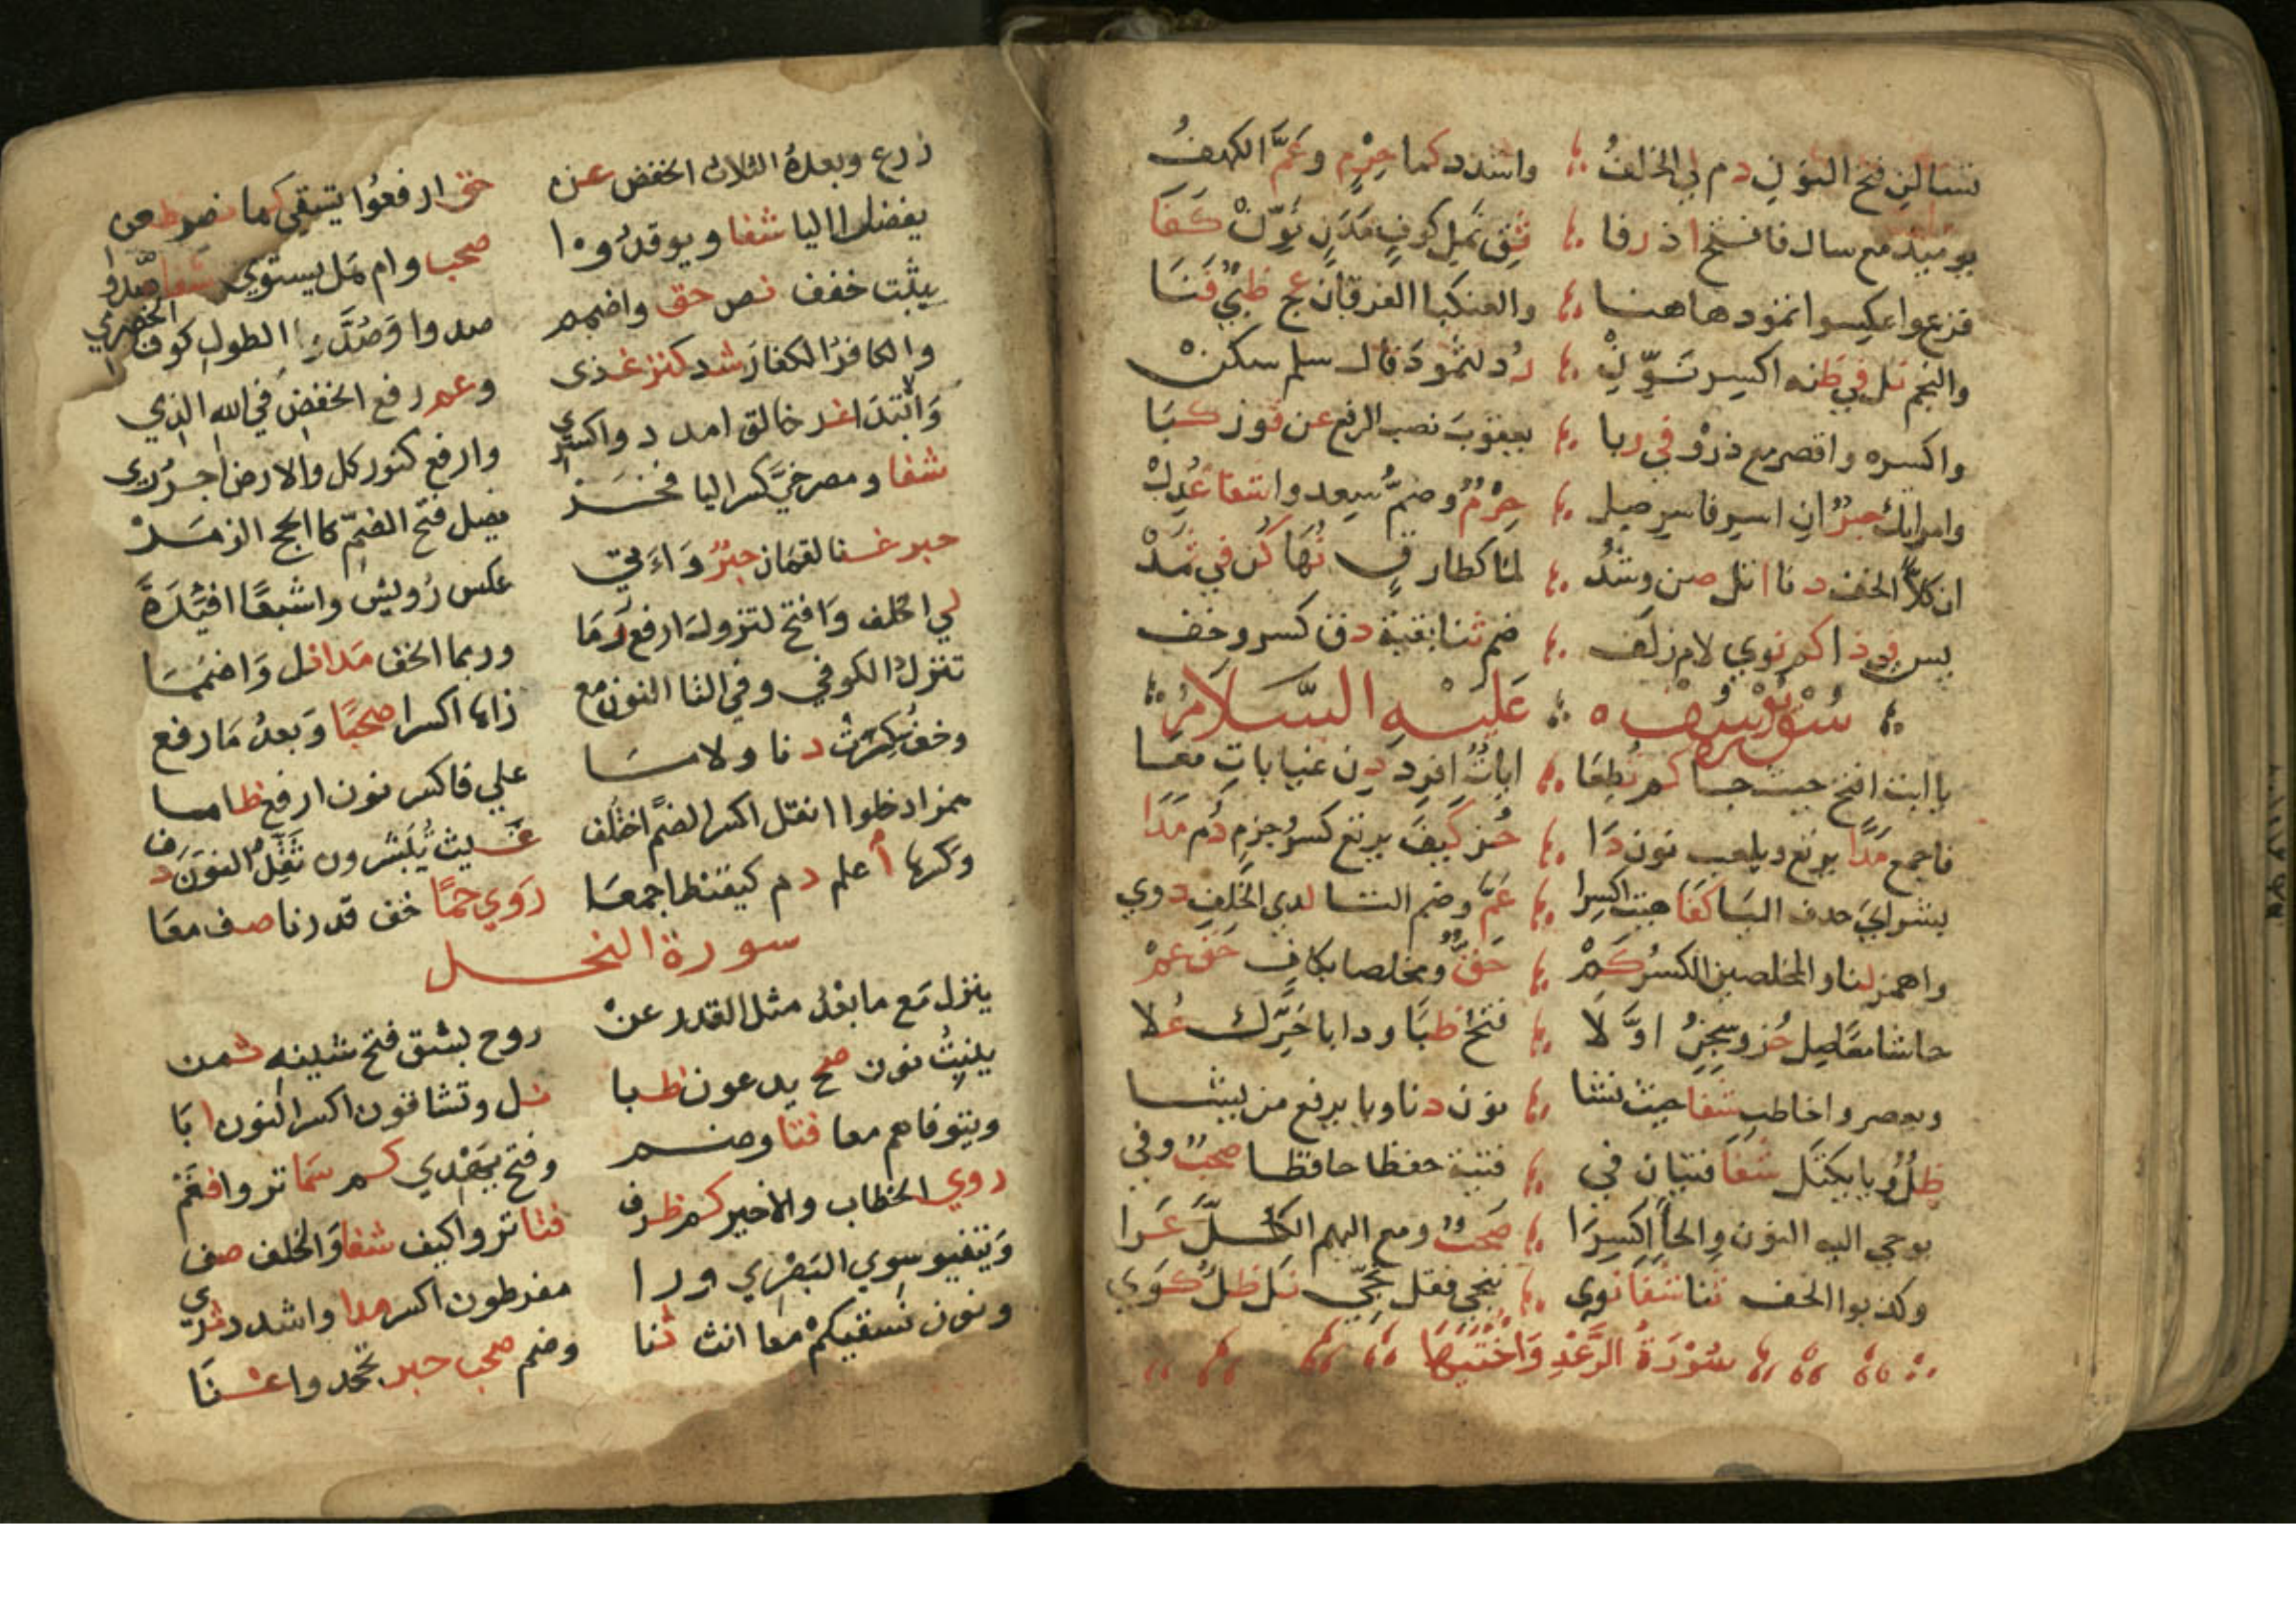 تسالن فتح النون دم لي الخلف واشدد كما حرم وعم الكهف
يومئذ مع سال فافتح اذ رفا ثق نمل كوف مدن نون كفا
فزع واعكسوا ثمود هاهنا والعنكبا الفرقان عج ظبي فنا
والنجم نل في ظنه اكسر نون رد لثمود قال سلم سكن
واكسره واقصر مع ذرو في ربا يعقوب نصب الرفع عن فوز كبا
وامراتك حبر ان اسر فاسر صل حرم وضم سعدوا شفا عدل
ان كلا الخف دنا اتل صن وشد لما كطارق نهى كن في ثمد
يس في ذا كم نوي لام زلف ضم ثنا بقية ذق كسر وخف
سورة يوسف عليه السلام
يا ابت افتح حيث جا كم ثطعا ايات افرد دن غيابات معا
فاجمع مدا يرتع ويلعب نون دا حز كيف يرتع كسر جزم دم مدا
بشراي حذف اليا كفا هيت اكسرا عم وضم التا لدي الخلف دري
واهمز لنا والمخلصين الكسر كم حق ومخلصا بكاف حق عم
حاشا معا صل حز وسجن اولا فتح ظبا ودابا حرك علا
ويعصروا خاطب شفا حيث نشا نون دنا ويا يرفع من يشا
ظل ويا يكتل شفا فتيان في فتية حفظا حافظا صحب وفي
يوحي اليه النون والحا اكسرا صحب ومع اليهم الكل عرا
وكذبوا الخف ثنا شفا نوي ننجي فقل نجي نل ظل كوي
سورة الرعد واختيها
زرع وبعده الثلاث الخفض عن حق ارفعوا يسقي كما نصر ظعن
يفضل اليا شفا ويوقدوا صحب وام هل يستوي شفا صدوا
يثبت خفف نص حق واضمم صدوا وصد الطول كوف الحضرمي
والكافر الكفار شد كنز غذي وعم رفع الخفض في الله الذي
والابتدا غر خالق امدد واكسر وارفع كنور كل والارض اجرر
شفا ومصرخي كسر اليا فخر يضل فتح الضم كالحج الزمر
حبر غنا لقمان حبر واتي عكس رويس واشبعا افئدة
لي الخلف وافتح لتزول ارفع رما وربما الخف مدا نل واضمما
تنزل الكوفي وفي التا النون مع زاها اكسرا صحبا وبعد ما رفع
وخف سكرت دنا ولاما علي فاكسر نون ارفع ظاما
همز ادخلوا انقل اكسر الضم اختلف غيث تبشرون ثقل النون دف
وكسرها اعلم دم كيقنط اجمعا روي حما خف قدرنا صف معا
سورة النحل
ينزل مع ما بعد مثل القدر عن روح بشق فتح شينه ثمن
ينبت نون صح يدعون ظبا نل وتشاقون اكسر النون ابا
ويتوفاهم معا فتا وضم وفتح يهدي كم سما تروا فعم
روي الخطاب والاخير كم ظرف فتا تروا كيف شفا والخلف صف
ويتفيو سوي البصري ورا مفرطون اكسر مدا واشدد ثرى
ونون نسقيكم معا انث ثنا وضم صحب حبر تجحدوا غنا